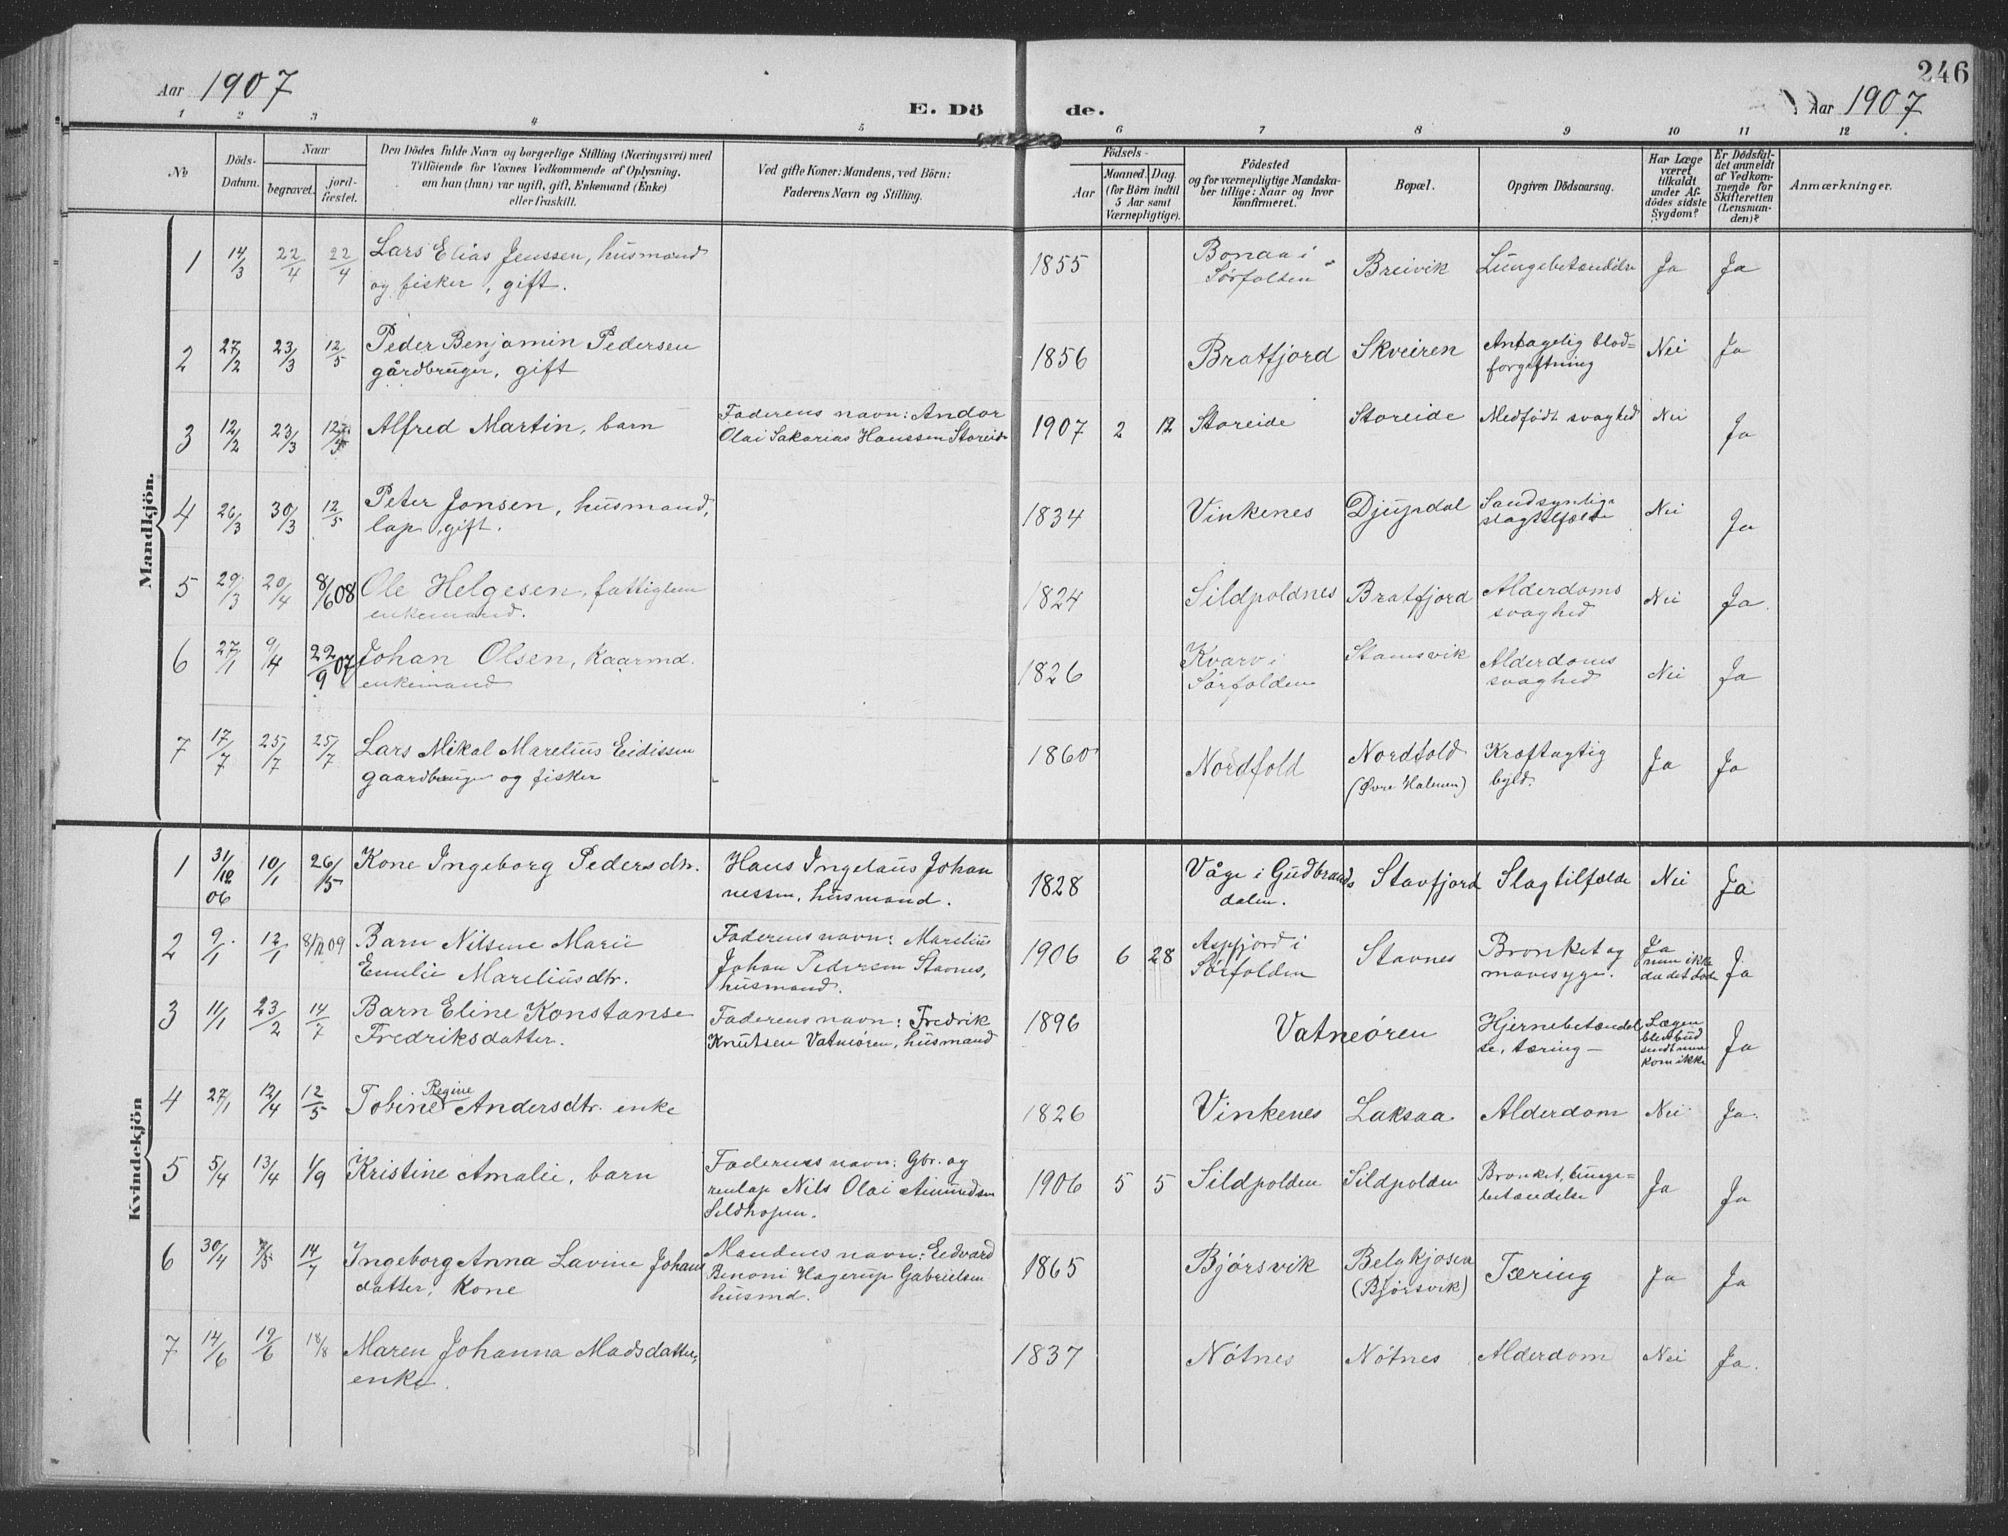 246
Aar 1907
E. Dö de.
Aar 1907
1 2 3 4 5 6 7 8 9 10 11 12
No
Döds-Datum.
Naar
begravet.
jord-fæstet.
Den Dödes fulde Navn og borgerlige Stilling (Næringsvei) med
Tilföiende for Voxnes Vedkommende af Oplysning,
om han (hun) var ugift, gift, Enkemand (Enke)
eller fraskilt.
Ved gifte Koner: Mandens, ved Börn:
Faderens Navn og Stilling.
Födsels-
Aar
Maaned. Dag.
(for Börn indtil
5 Aar samt
Værnepligtige).
Födested
og for værnepligtige Mandska-
ber tillige: Naar og hvor
konfirmeret.
Bopæl.
Opgiven Dödsaarsag.
Har Læge
været
tilkaldt
under Af-
dödes sidste
Sygdom?
Er Dödsfal-
det anmeldt
af Vedkom-
mende for
Skifteretten
(Lensman-
den)?
Anmærkninger.
Mandkjön.
1 14/3 22/4 22/4 Lars Elias Jenssen, husmand
og fisker, gift.
1855 Bonaa i
Sørfolden Breivik Lungebetændelse Ja Ja
2 27/2 23/3 12/5 Peder Benjamin Pedersen
gårdbruger, gift
1856 Bratfjord Skveiren Antagelig blod=
forgiftning Nei Ja
3 12/2 23/3 12/5 Alfred Martin, barn
Faderens navn: Andor
Olai Sakarias Hanssen Storeide
1907 2 12 Storeide Storeide Medfødt svaghed Nei Ja
4 26/3 30/3 12/5 Peter Jonsen, husmand,
lap, gift.
1834 Vinkenes Djupdal Sandsynligv
slagtilfælde Nei Ja
5 29/3 20/4 8/6 08 Ole Helgesen, fattiglem
enkemand.
1824 Sildpoldnes Bratfjord Alderdoms
svaghed Nei Ja.
6 27/1 9/4 22/9 07 Johan Olsen, kaarmd.
enkemand
1826 Kvarv i
Sørfolden Stamsvik Alderdoms
svaghed Nei Ja
7 17/7 25/7 25/7 Lars Mikal Marelius Eidissen
gaardbruger og fisker
1860 Nordfold Nordfold
(Øvre Halmen) Kræftagtig
byld. Ja Ja
Kvindekjön
1 31/12 06 10/1 26/5 Kone Ingeborg Pedersdtr.
Hans Ingelaus Johan
nessen, husmand.
1828 Våge i Gudbrands
dalen. Stavfjord Slagtilfælde Nei Ja
2 9/1 12/1 8/11 09 Barn Nilsine Marie
Emilie Mareliusdtr.
Faderens navn: Marelius
Johan Pedersen Stavnes,
husmand.
1906 6 28 Aspfjord i
Sørfolden Stavnes Bronket og
mavesyge. Ja
men ikke
da det døde Ja
3 11/1 23/2 14/7 Barn Eline Konstanse
Fredriksdatter.
Faderens navn: Fredrik
Knutsen Vatneøren, husmand
1896 Vatneøren Hjernebetændel
se, tæring - Lægen
blev bud
sendt men
kom ikke Ja
4 27/1 12/4 12/5 Tobine Regine Andersdtr. enke
1826 Vinkenes Laksaa Alderdom Nei Ja.
5 5/4 13/4 1/9 Kristine Amalie, barn
Faderens navn: Gbr. og
renlap Nils Olai Amundsen
Sildhopen.
1906 5 5 Sildpolden Sildpolden Bronket, lunge=
betændelse Ja Ja
6 30/4 7/5 14/7 Ingeborg Anna Lavine Johans
datter, Kone
Mandens navn: Eedvard
Benoni Hagerup Gabrielsen
husmd.
1865 Bjørsvik Belgkjosen
(Bjørsvik) Tæring Ja Ja
7 14/6 19/6 18/8 Maren Johanna Madsdatter,
enke.
1837 Nøtnes Nøtnes Alderdom Nei Ja.